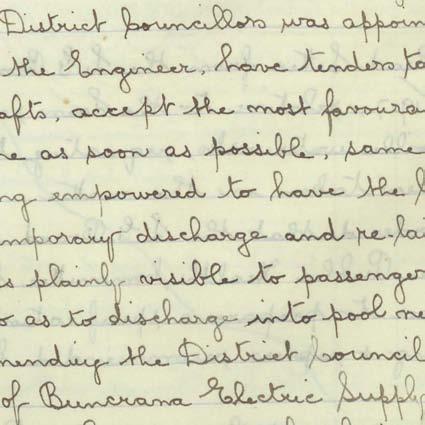 District Councillors was appoin
the Engineer, have tenders ta
afts, accept the most favoura
ne as soon as possible, same
ng empowered to have the
mporary discharge and re-lai
s plainly visible to passenger
o as to discharge into pool ne
mending the District Council
of Buncrana Electric Supply